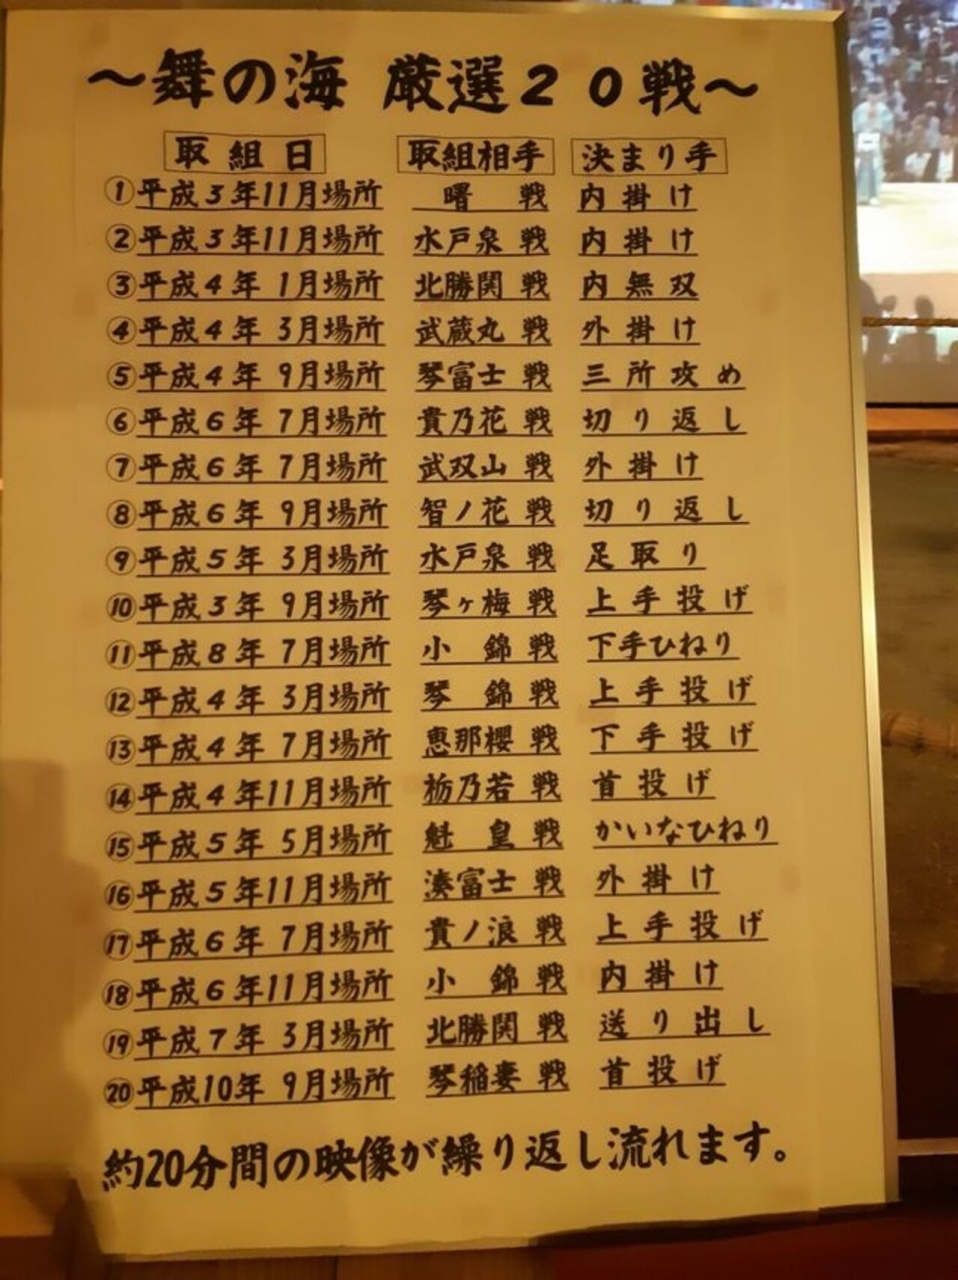 ～舞の海 厳選20戦～
取組日 取組相手 決まり手
①平成3年11月場所 曙 戦 内掛け
②平成3年11月場所 水戸泉 戦 内掛け
③平成4年 1月場所 北勝関 戦 内無双
④平成4年 3月場所 武蔵丸 戦 外掛け
⑤平成4年 9月場所 琴富士 戦 三所攻め
⑥平成6年 7月場所 貴乃花 戦 切り返し
⑦平成6年 7月場所 武双山 戦 外掛け
⑧平成6年 9月場所 智ノ花 戦 切り返し
⑨平成5年 3月場所 水戸泉 戦 足取り
⑩平成3年 9月場所 琴ヶ梅 戦 上手投げ
⑪平成8年 7月場所 小 錦 戦 下手ひねり
⑫平成4年 3月場所 琴 錦 戦 上手投げ
⑬平成4年 7月場所 恵那櫻 戦 下手投げ
⑭平成4年11月場所 栃乃若 戦 首投げ
⑮平成5年 5月場所 魁 皇 戦 かいなひねり
⑯平成5年11月場所 湊富士 戦 外掛け
⑰平成6年 7月場所 貴ノ浪 戦 上手投げ
⑱平成6年11月場所 小 錦 戦 内掛け
⑲平成7年 3月場所 北勝関 戦 送り出し
⑳平成10年 9月場所 琴稲妻 戦 首投げ
約20分間の映像が繰り返し流れます。